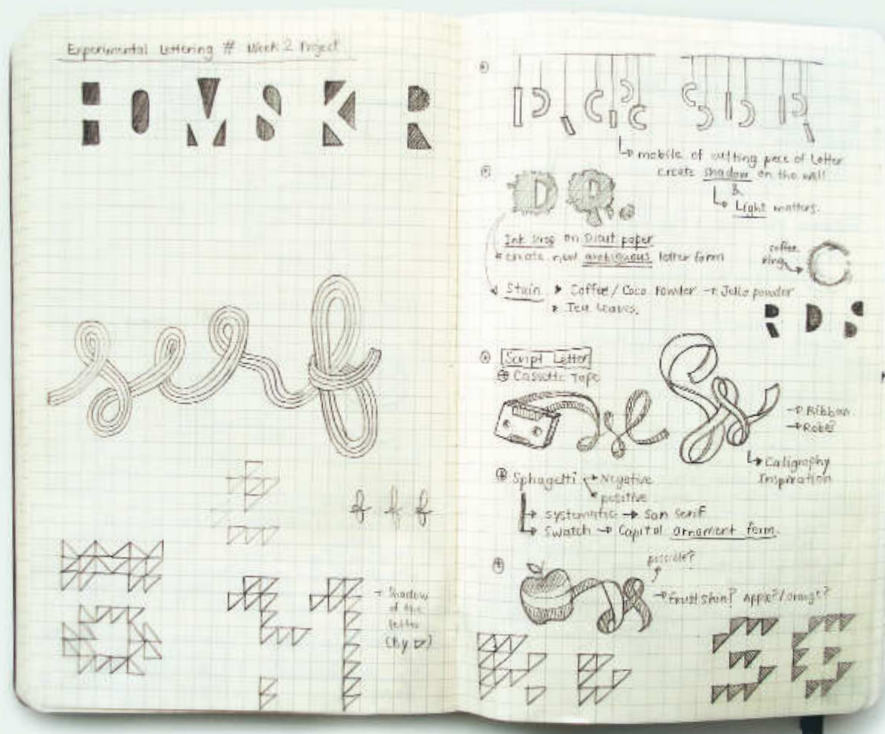 Experimental Lettering # Week 2 Project
H O M S K R
serif
Shadow
of the
letter
(by
mobile of cutting piece of letter
create shadow on the wall
&
Light matters.
D R
Ink drop on Dicut paper
create new ambiguous letter form
coffee
ring
C
Stain Coffee / Coco Powder Jello powder
Tea leaves.
R D S
Script Letter
Cassette Tape
Ribbon
Robe?
Caligraphy
Inspiration
Sphagetti Negative
positive
systematic San serif
Swatch Capital ornament form.
possible?
Fruit Skin? Apple?/orange?